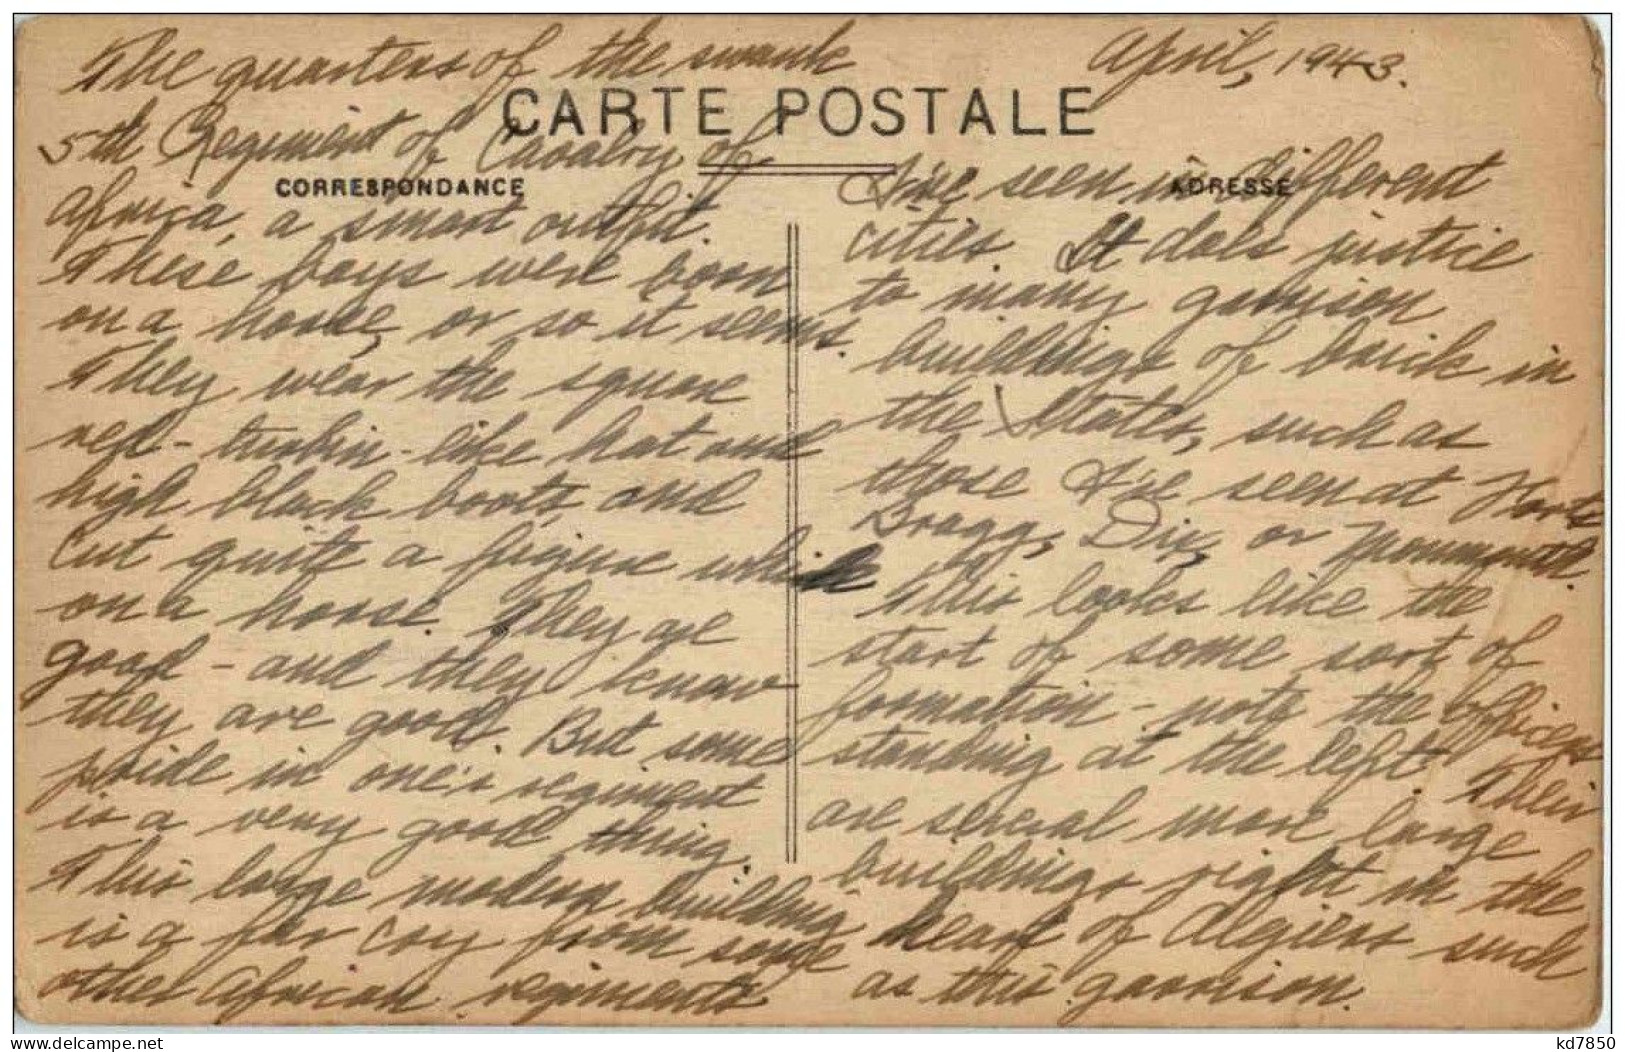 April, 1943.
The quarters of the swank
CARTE POSTALE
5th Regiment of Cavalry of
CORRESPONDANCE
Africa, a smart outfit.
These boys were born
on a horse, or so it seems.
They wear the square
red-turbin-like hat and
high black boots, and
cut quite a figure while
on a horse. They are
good - and they know
they are good. But some
pride in one's regiment
is a very good thing.
This large modern building
is a far cry from some
other African regiments
ADRESSE
I've seen in different
cities. It does justice
to many garrison
buildings of brick in
the States, such as
those I've seen at Forts
Bragg, Dix, or Monmouth.
This looks like the
start of some sort of
formation - note the officers
standing at the left. Their
are several more large
buildings right in the
heart of Algiers such
as this garrison.
delcampe.net
kd7850